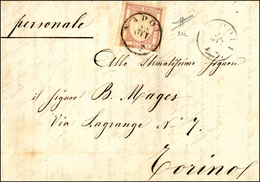 personale
NAPOLI
All Stimatissimo Signore
il Signor B. Mages
Via Lagrange N. 7.
Torino